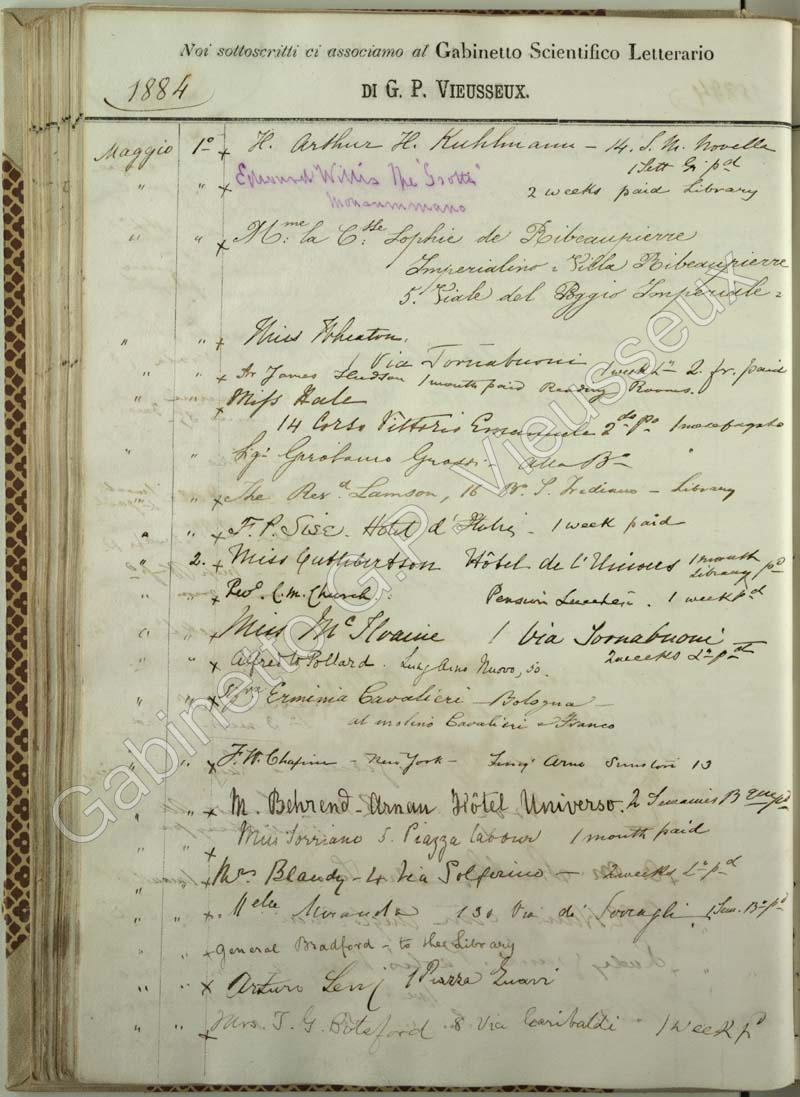 Noi sottoscritti ci associamo al Gabinetto Scientifico Letterario
1884
DI G. P. VIEUSSEUX.
Maggio 1º x H. Arthur H. Kuhlmann - 14. S. M. Novella
1 Sett pd
" " x Edward Willis The "Grotto"
Monsummano
2 weeks paid Library
" " x Mme la Csse Sophie de Ribeaupierre
Imperialino = Villa Ribeaupierre
5. Viale del Poggio Imperiale =
" " x Miss Wheaton.
Via Tornabuoni 1 week 2. fr. paid
" " x Sr James Hudson 1 month paid Reading Rooms.
x Miss Hale
14 Corso Vittorio Emanuele 2do po 1 mese pagato
" " Girolamo Grassi - alla
" " x The Revd Lamson, 16 Bo. S. Frediano - Library
" " x F. P. Hotel d' 1 week paid
" 2. x Miss Cuthbertson Hôtel de l'Univers 1 month
Library pd
" " x Revd. C. M. Church. Pension Lucchesi. 1 week pd
" " x Miss McIlvaine 1 Via Tornabuoni
2 weeks pd
" " x Alfred W Pollard. Lung Arno Nuovo, 50.
" " x Sigra Erminia Cavalieri - Bologna -
al molino Cavalieri e Franco
" " x F. W. Chapin - New York - Lung' Arno 13
" " x M. Behrend-Arnau Hôtel Universo. 2 Semaines
" " x Miss Sorriano 5. Piazza Cavour 1 month paid
" " x Mrs Blandy - 4 Via Solferino - 2 weeks pd
" " x Melle Miranda 130 Via de' Serragli, 1 Sem.
" " x General Bradford - to the Library
" " x Arturo Levi 1 Piazza
" " x Mrs. T. G. Botsford 8 Via Garibaldi 1 week pd
Gabinetto G.P. Vieusseux